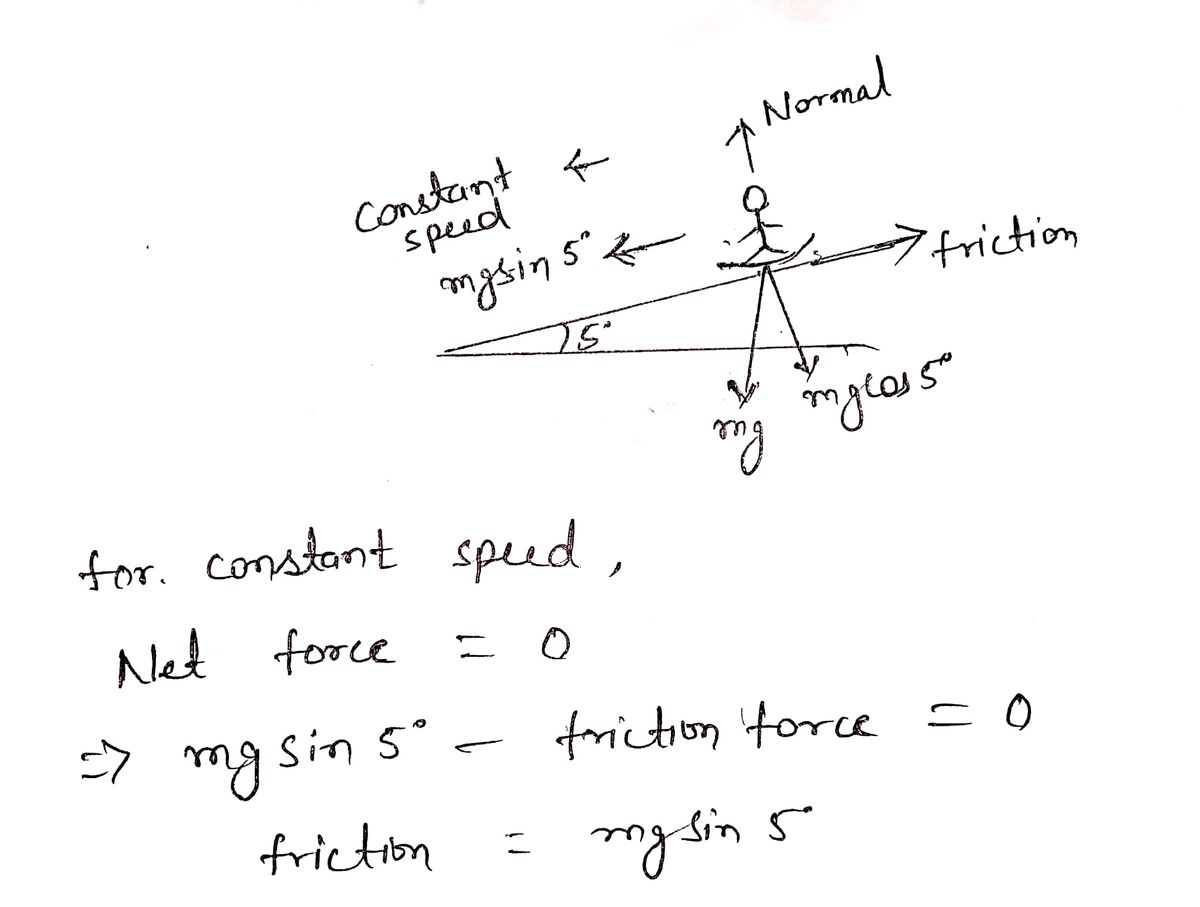 Normal
constant
speed
mgsin 5°
friction
5°
mg
mgcos 5°
for. constant speed,
Net force = 0
=> mg sin 5° - friction force = 0
friction = mg sin 5°